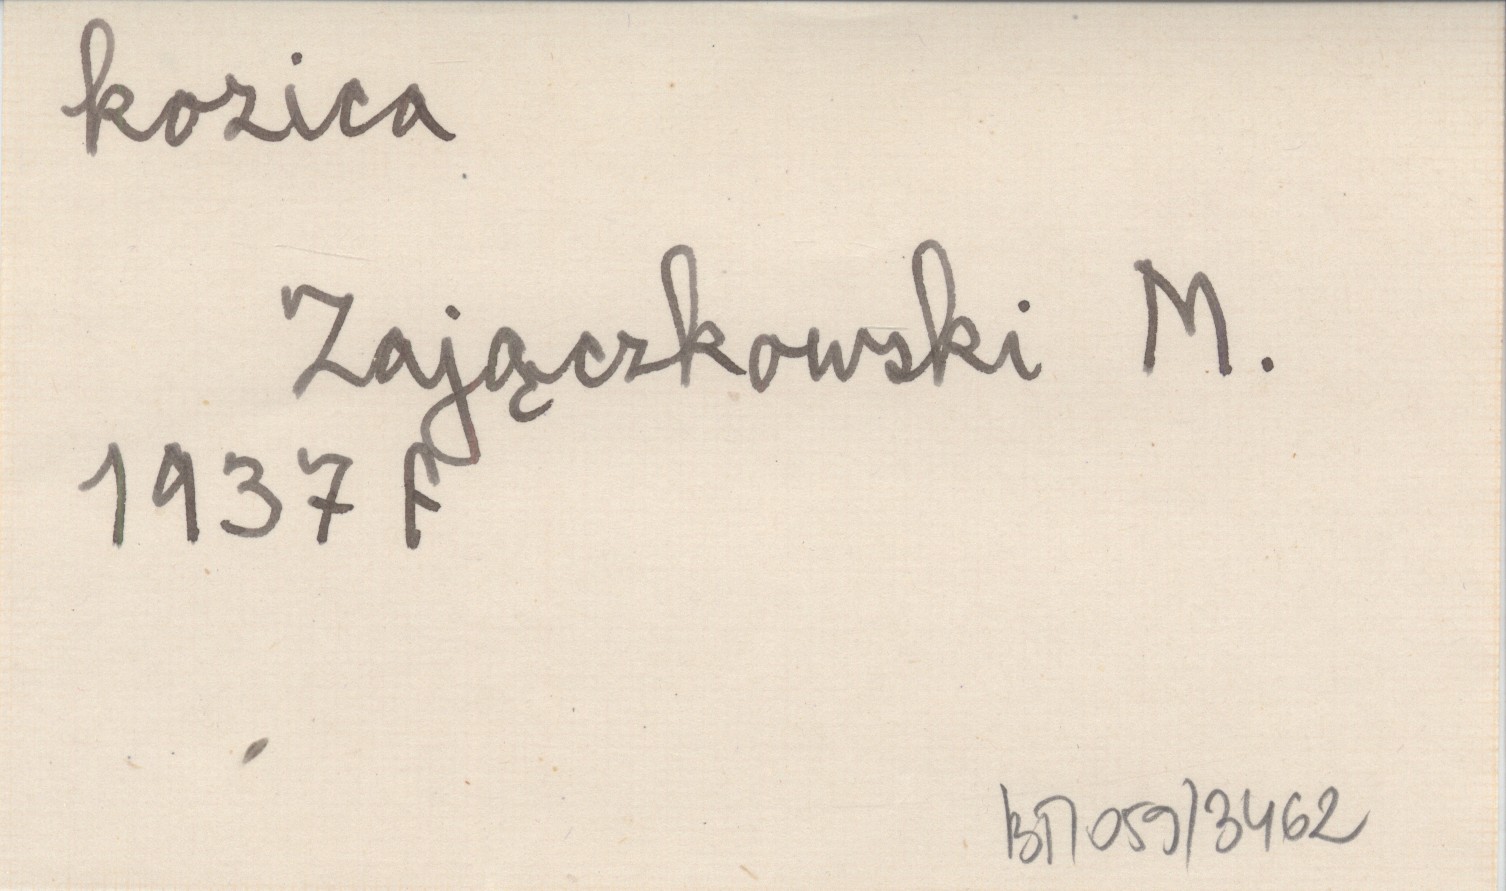 kozica
Zajączkowski M.
1937 F
BП059/3462